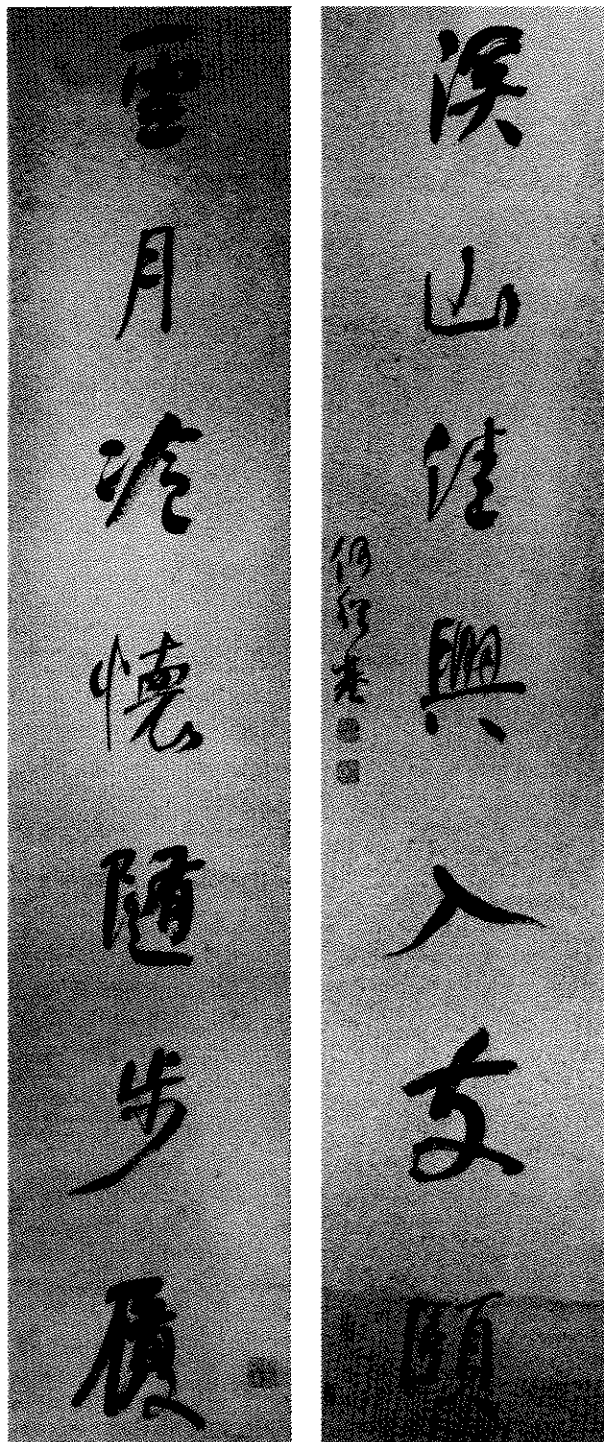 溪山佳興入支頤
何紹基
雲月冷懷隨步履